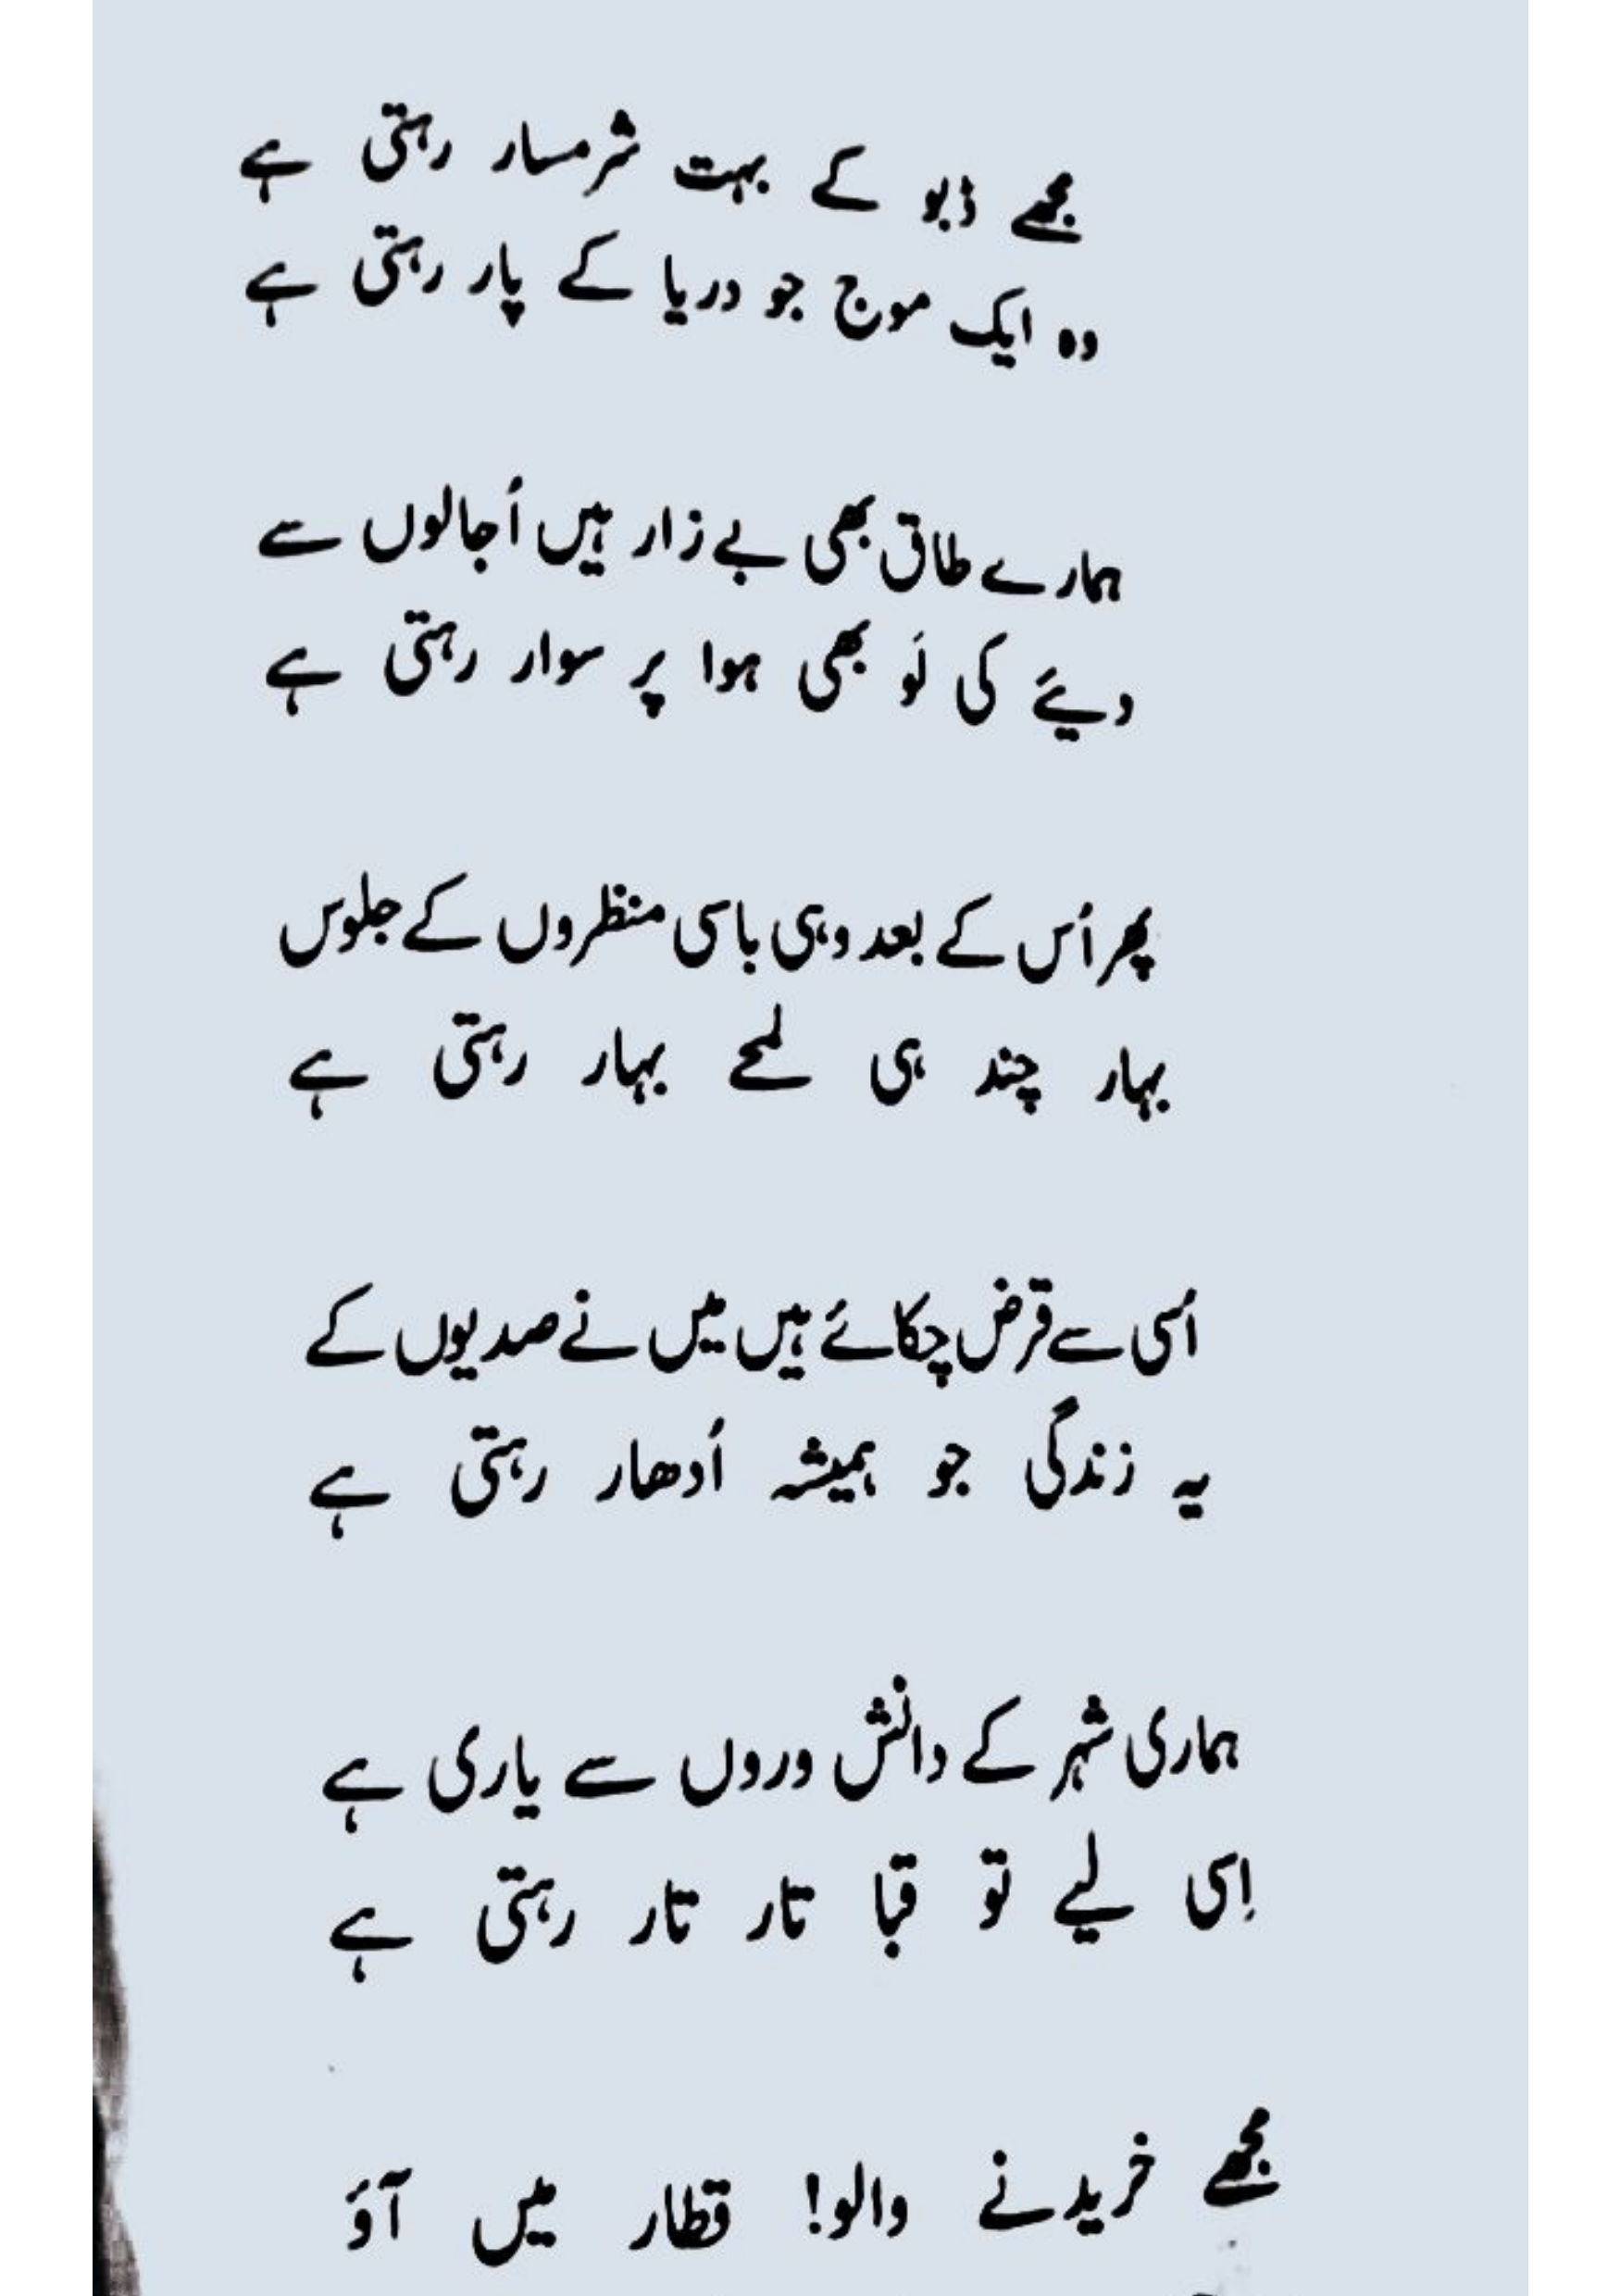 مجھے ڈبو کے بہت شرمسار رہتی ہے
وہ ایک موج جو دریا کے پار رہتی ہے
ہمارے طاق بھی بے زار ہیں اُجالوں سے
دیئے کی لَو بھی ہوا پر سوار رہتی ہے
پھر اُس کے بعد وہی باسی منظروں کے جلوس
بہار چند ہی لمحے بہار رہتی ہے
اُسی سے قرض چکائے ہیں میں نے صدیوں کے
یہ زندگی جو ہمیشہ اُدھار رہتی ہے
ہماری شہر کے دانش وروں سے یاری ہے
اِسی لیے تو قبا تار تار رہتی ہے
مجھے خریدنے والو! قطار میں آؤ